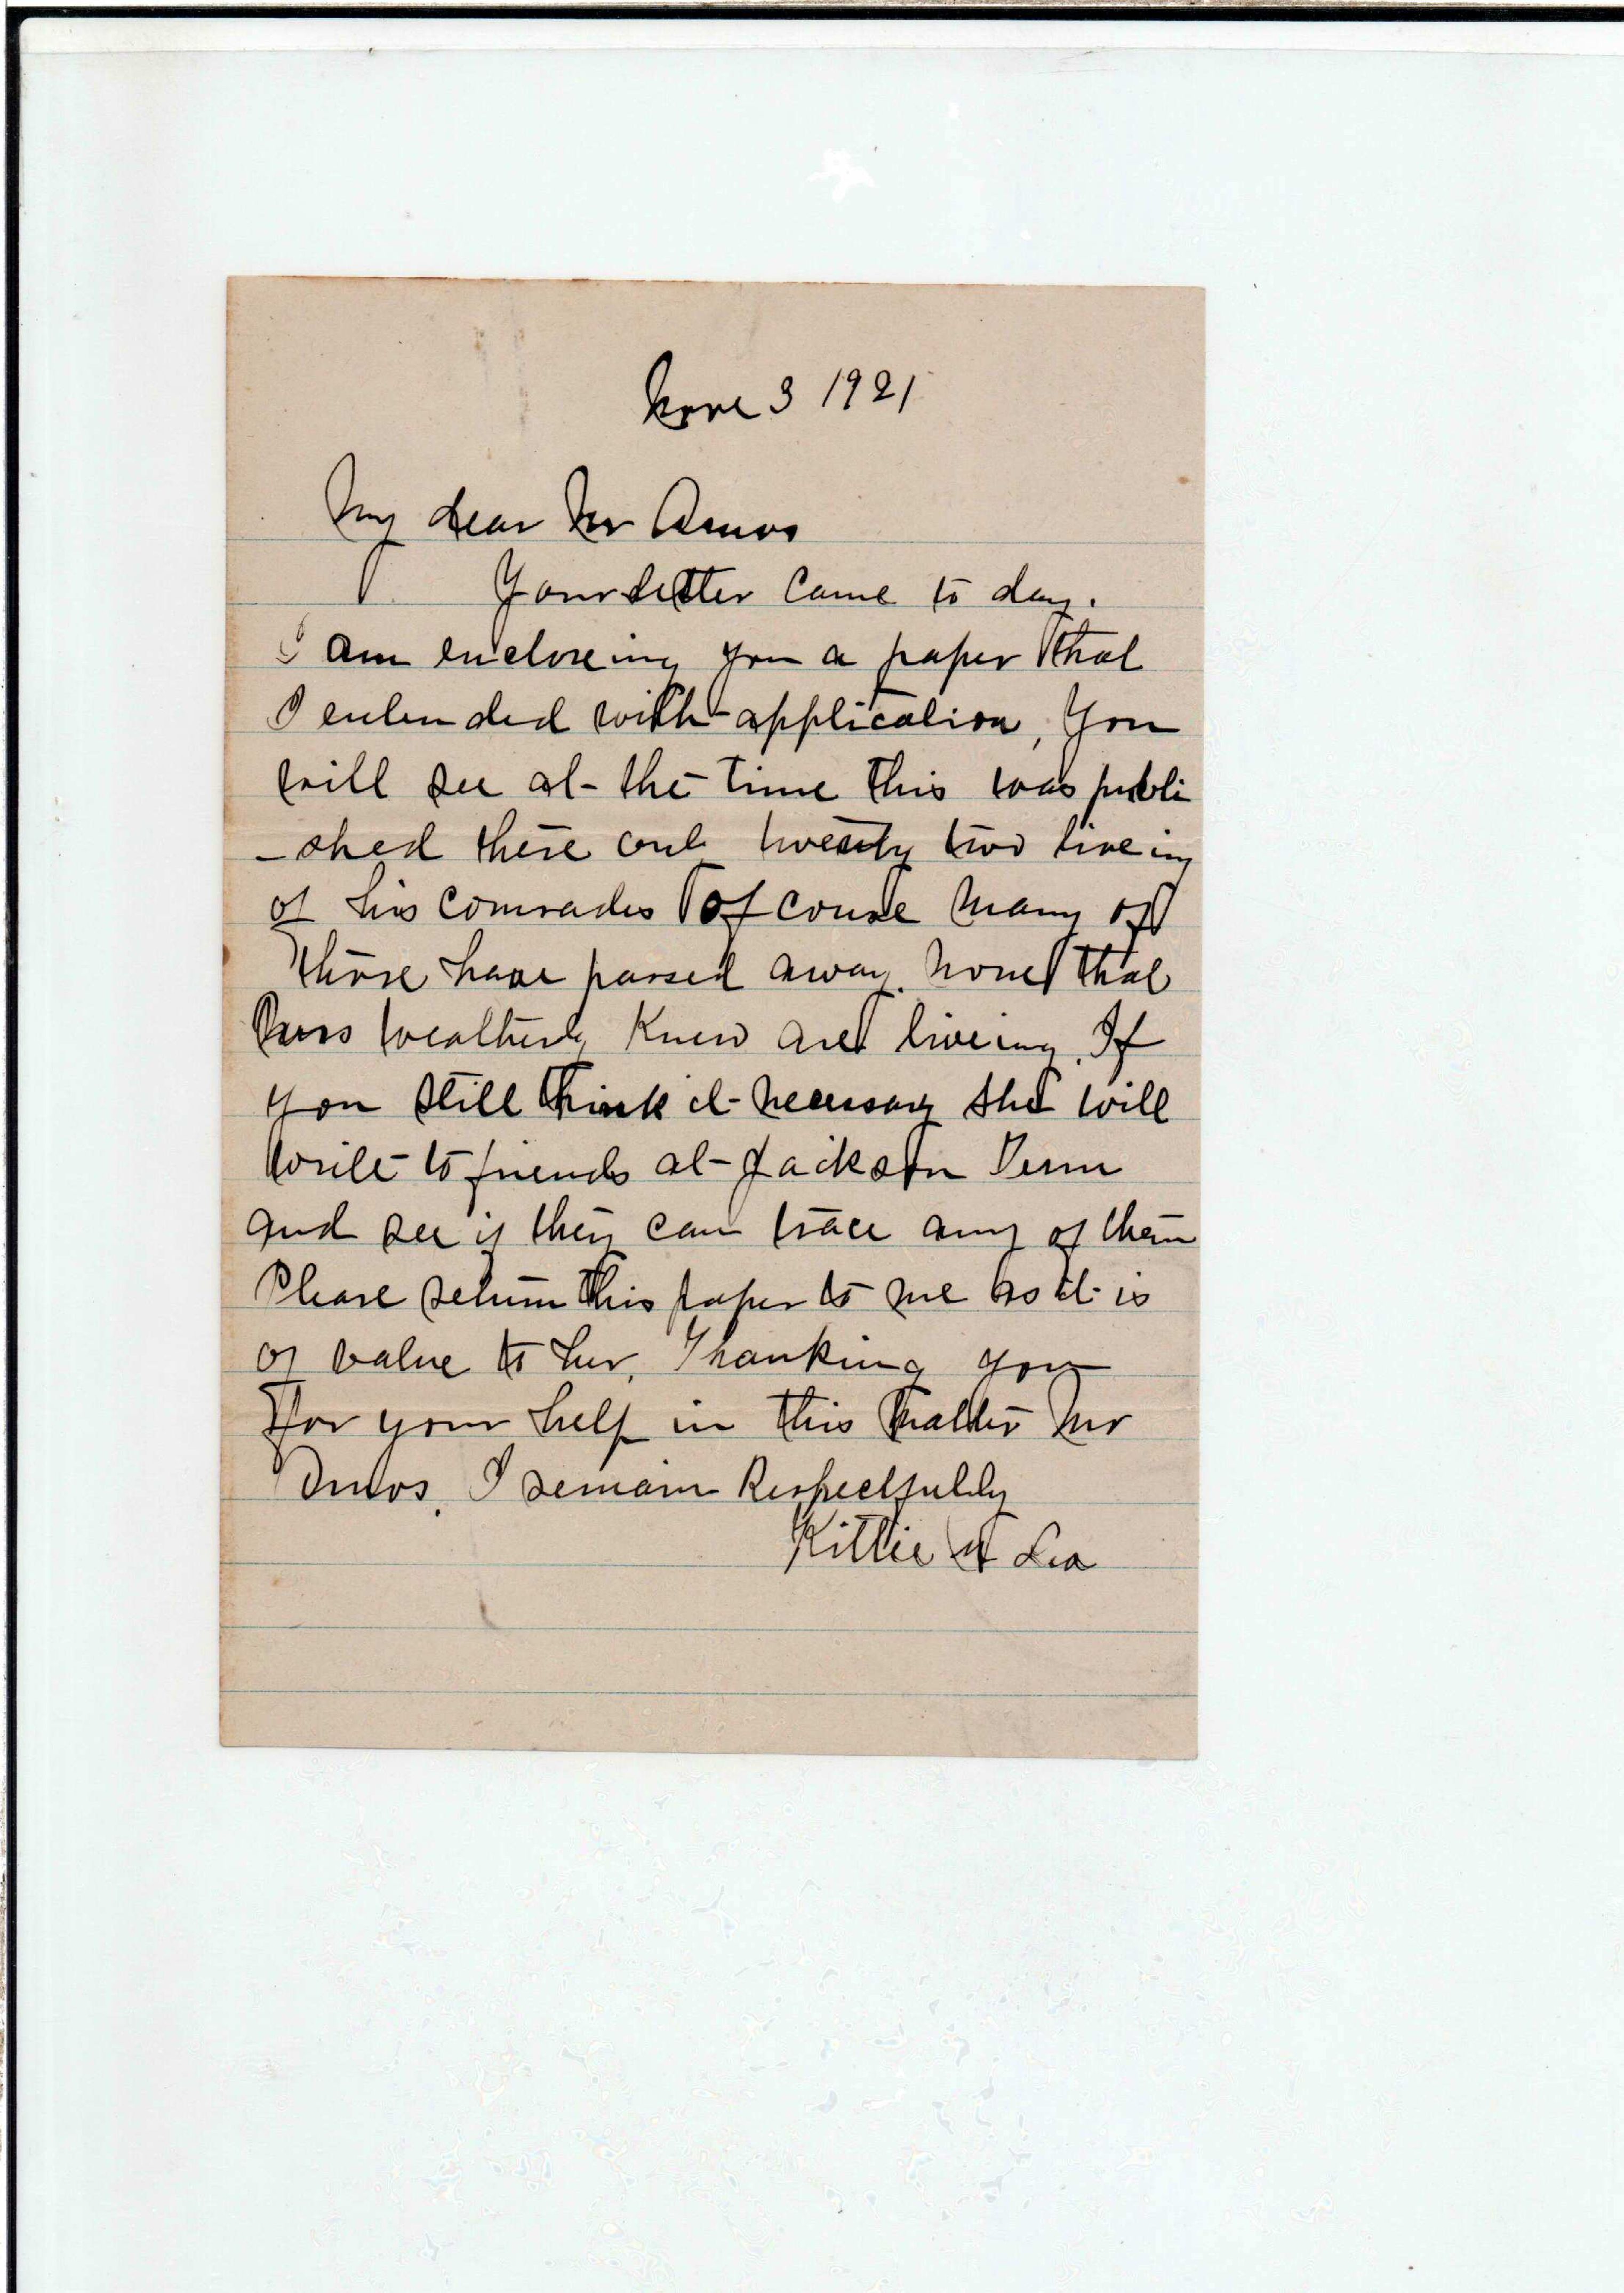 Nove 3 1921
My dear Mr Amos
Your letter came to day.
I am encloseing you a paper that
I entended with application, You
will see at the time this was publi
-shed there only twenty two liveing
of his comrades Of course many of
those have passed away. none that
Mrs Weatherly Knew are liveing. If
you still think it necessary she will
write to friends at Jackson Tenn
and see if they can trace any of them
Please return this paper to me as it is
of value to her, Thanking you
for your help in this matter Mr
Amos. I remain Respectfully
Kittie Lea